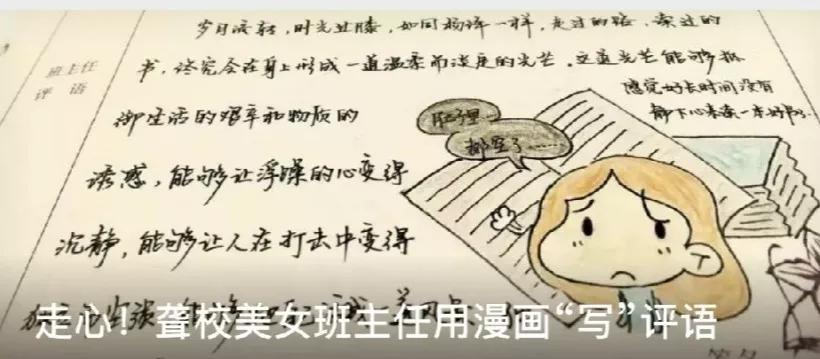 班主任
评语
岁月流转，时光，如同杨绛一样，走过的路，读过的
书，终究会在身上形成一道温柔而的光芒。这道光芒能够抵
御生活的艰辛和物质的
诱惑，能够让浮躁的心变得
沉静，能够让人在打击中变得
感觉好长时间没有
静下心来读一本好书
肚子里
都空了……
走心！聋校美女班主任用漫画“写”评语